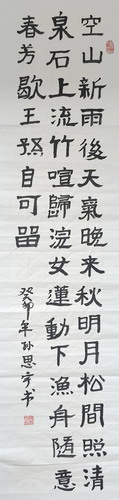 空山新雨後天氣晚来秋明月松間照清
泉石上流竹喧歸浣女蓮動下漁舟隨意
春芳歇王孫自可留
癸卯年孙思宇书